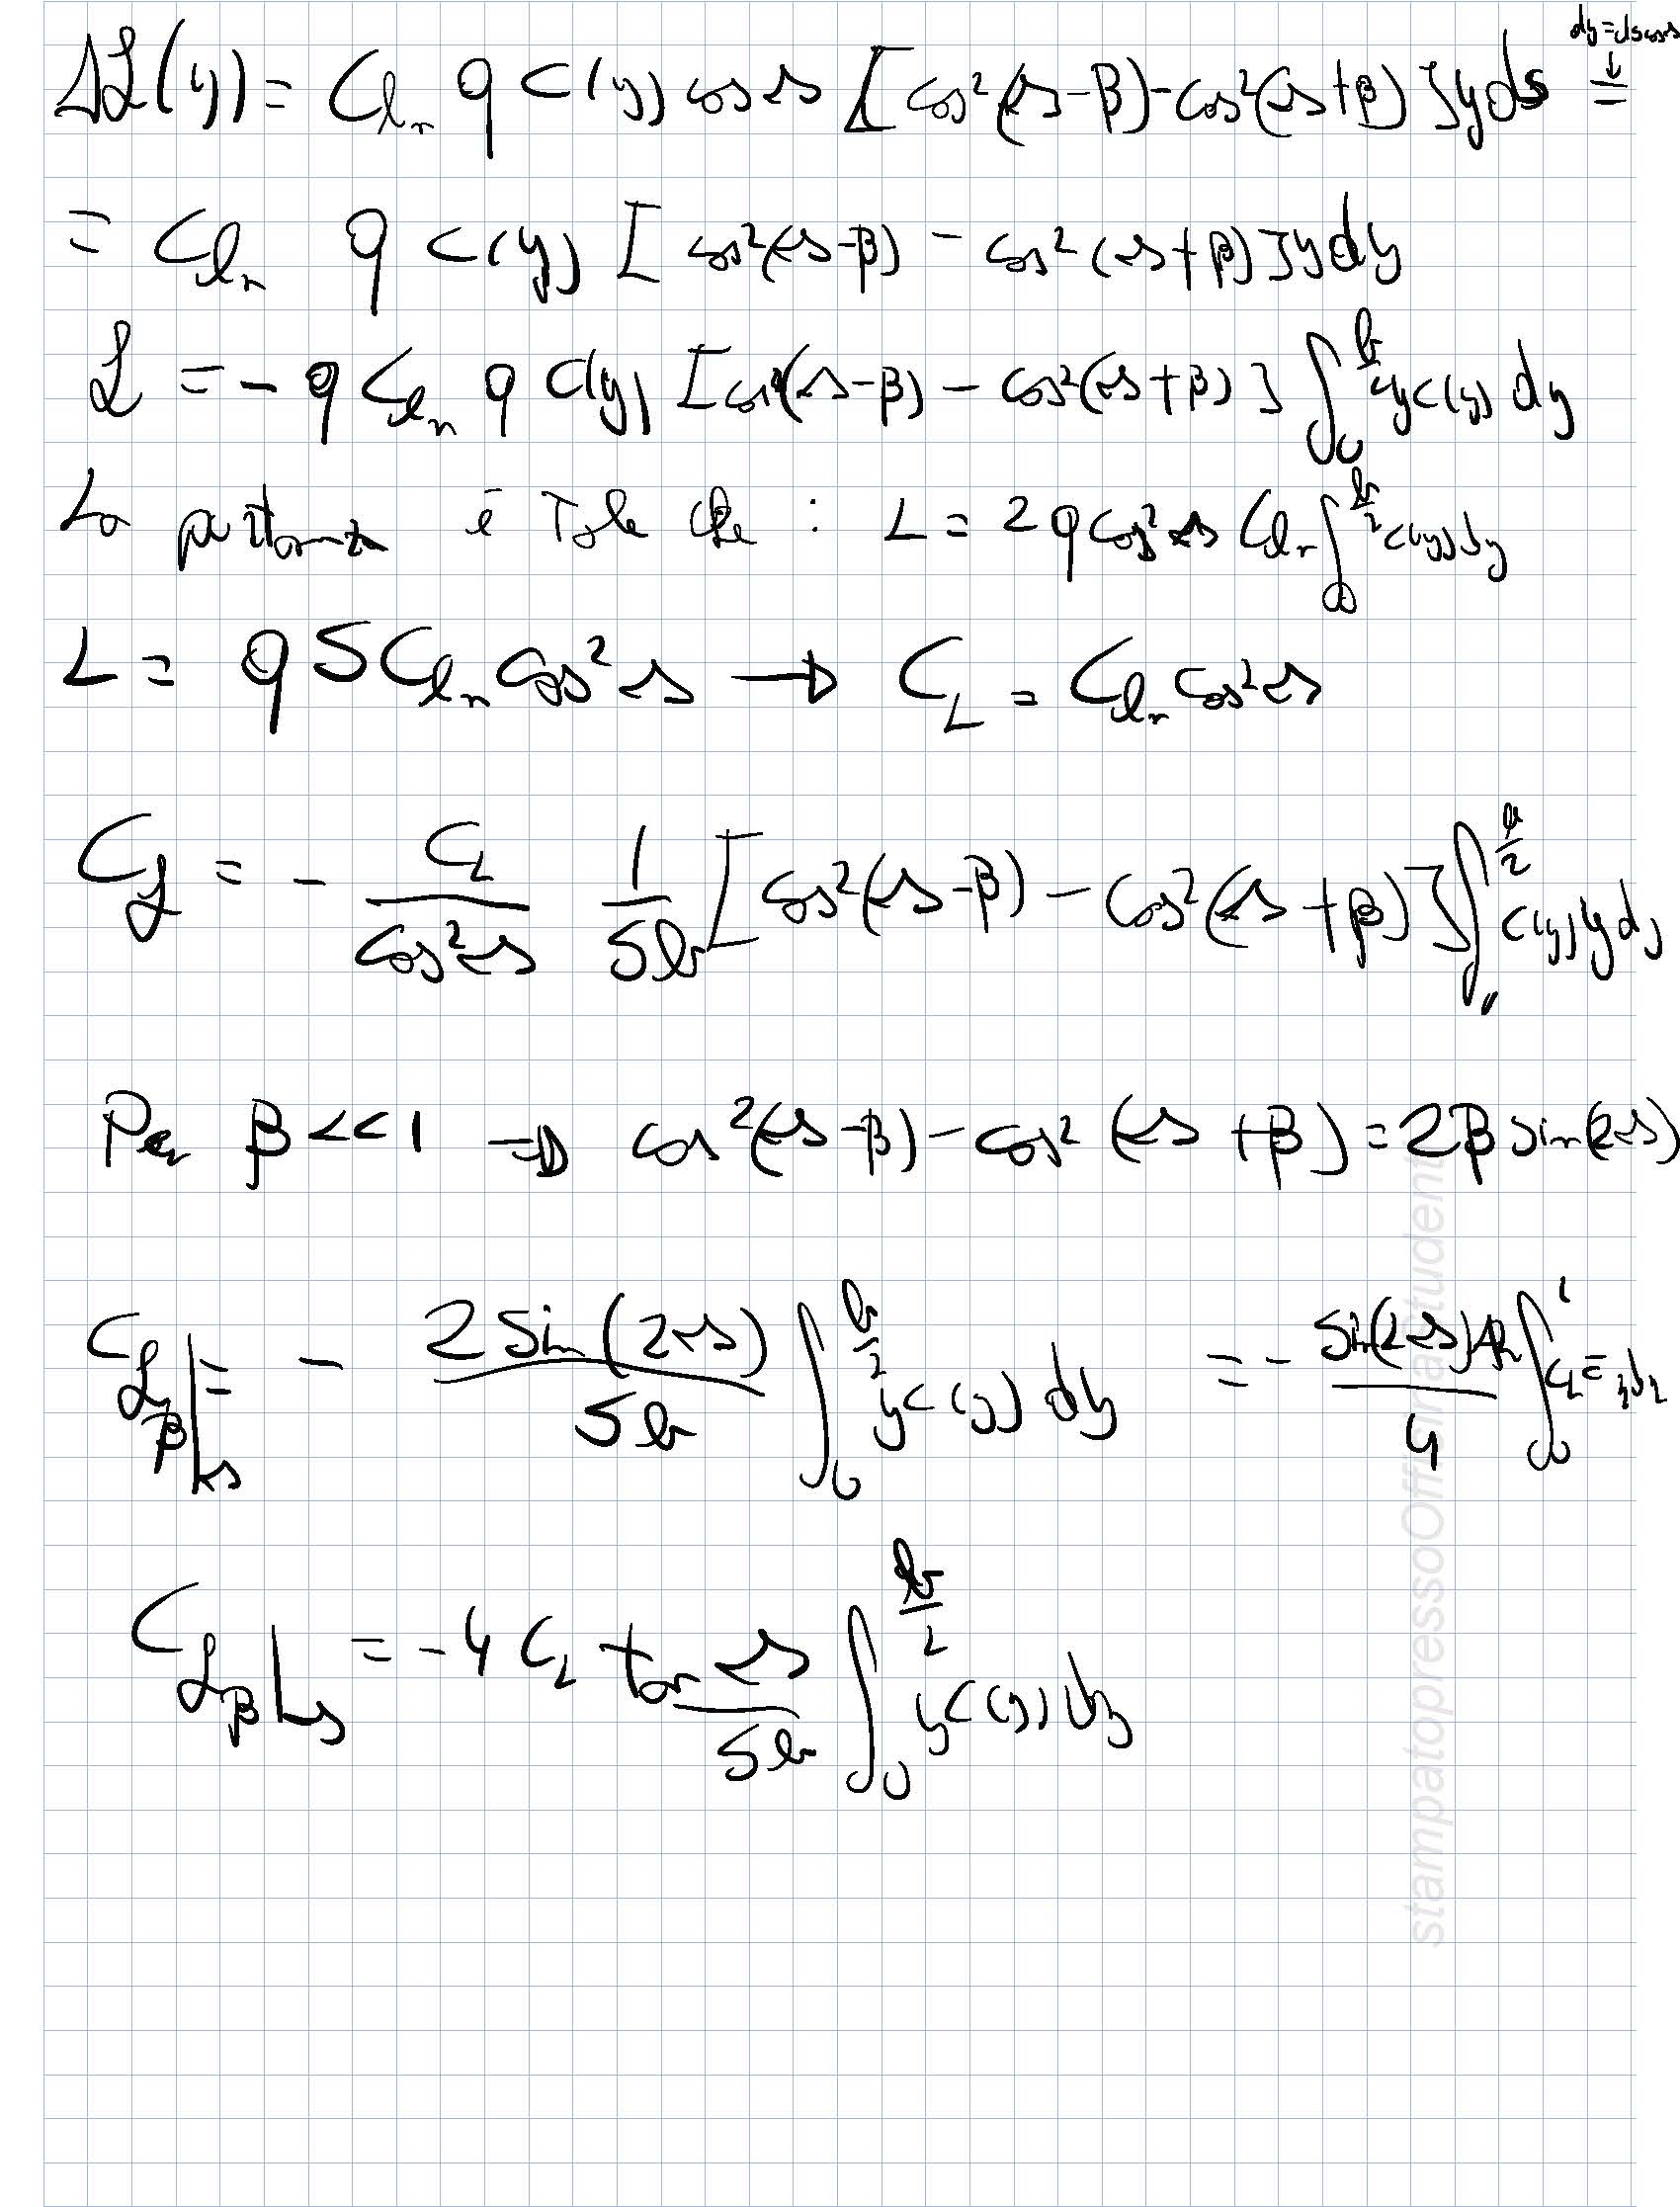 dy = ds cos Λ
Δℒ(y) = C_{l_n} q c(y) cos Λ [cos²(Λ-β) - cos²(Λ+β)] y ds =
= C_{l_n} q c(y) [cos²(Λ-β) - cos²(Λ+β)] y dy
ℒ = - q C_{l_n} q c(y) [cos²(Λ-β) - cos²(Λ+β)] ∫₀^{b/2} y c(y) dy
La portanza è Tale che : L = 2 q cos² Λ C_{l_n} ∫₀^{b/2} c(y) dy
L = q S C_{l_n} cos² Λ → C_L = C_{l_n} cos² Λ
C_ℒ = - C_L / cos² Λ 1 / Sb [cos²(Λ-β) - cos²(Λ+β)] ∫₀^{b/2} c(y) y dy
Per β << 1 ⇒ cos²(Λ-β) - cos²(Λ+β) = 2β sin(2Λ)
C_{ℒ_β}|_Λ = - 2 sin(2Λ) / Sb ∫₀^{b/2} y c(y) dy = - sin(2Λ) AR / 4 ∫₀^1
C_{ℒ_β}|_Λ = - 4 C_L tan Λ / Sb ∫₀^{b/2} y c(y) dy
stampatopressoOfficinaStudenti